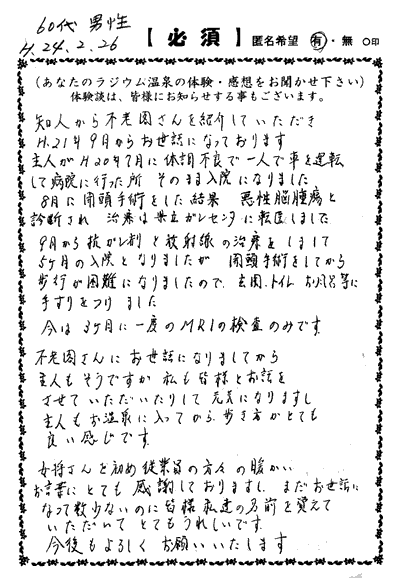 60代 男性
H.24.2.26
【必須】 匿名希望 有・無 ○印
(あなたのラジウム温泉の体験・感想をお聞かせ下さい)
体験談は、皆様にお知らせする事もございます。
知人から不老園さんを紹介していただき
H.21年9月からお世話になっております
主人がH.20年7月に体調不良で一人で車を運転
して病院に行った所 そのまま入院になりました
8月に開頭手術をした結果 悪性脳腫瘍と
診断され 治療は県立がんセンターに転医しました
9月から抗がん剤と放射線の治療をしまして
5ヶ月の入院となりましたが 開頭手術をしてから
歩行が困難になりましたので、玄関、トイレ、お風呂等に
手すりをつけました
今は3ヶ月に一度のMRIの検査のみです。
不老園さんにお世話になりましてから
主人もそうですが 私も皆様とお話を
させていただいたりして元気になりますし
主人もお温泉に入ってから歩き方がとても
良い感じです。
女将さんを初め従業員の方々の暖かい
お言葉にとても感謝しておりますし、まだお世話に
なって数少ないのに皆様私達の名前を覚えて
いただいてとてもうれしいです。
今後もよろしくお願いいたします